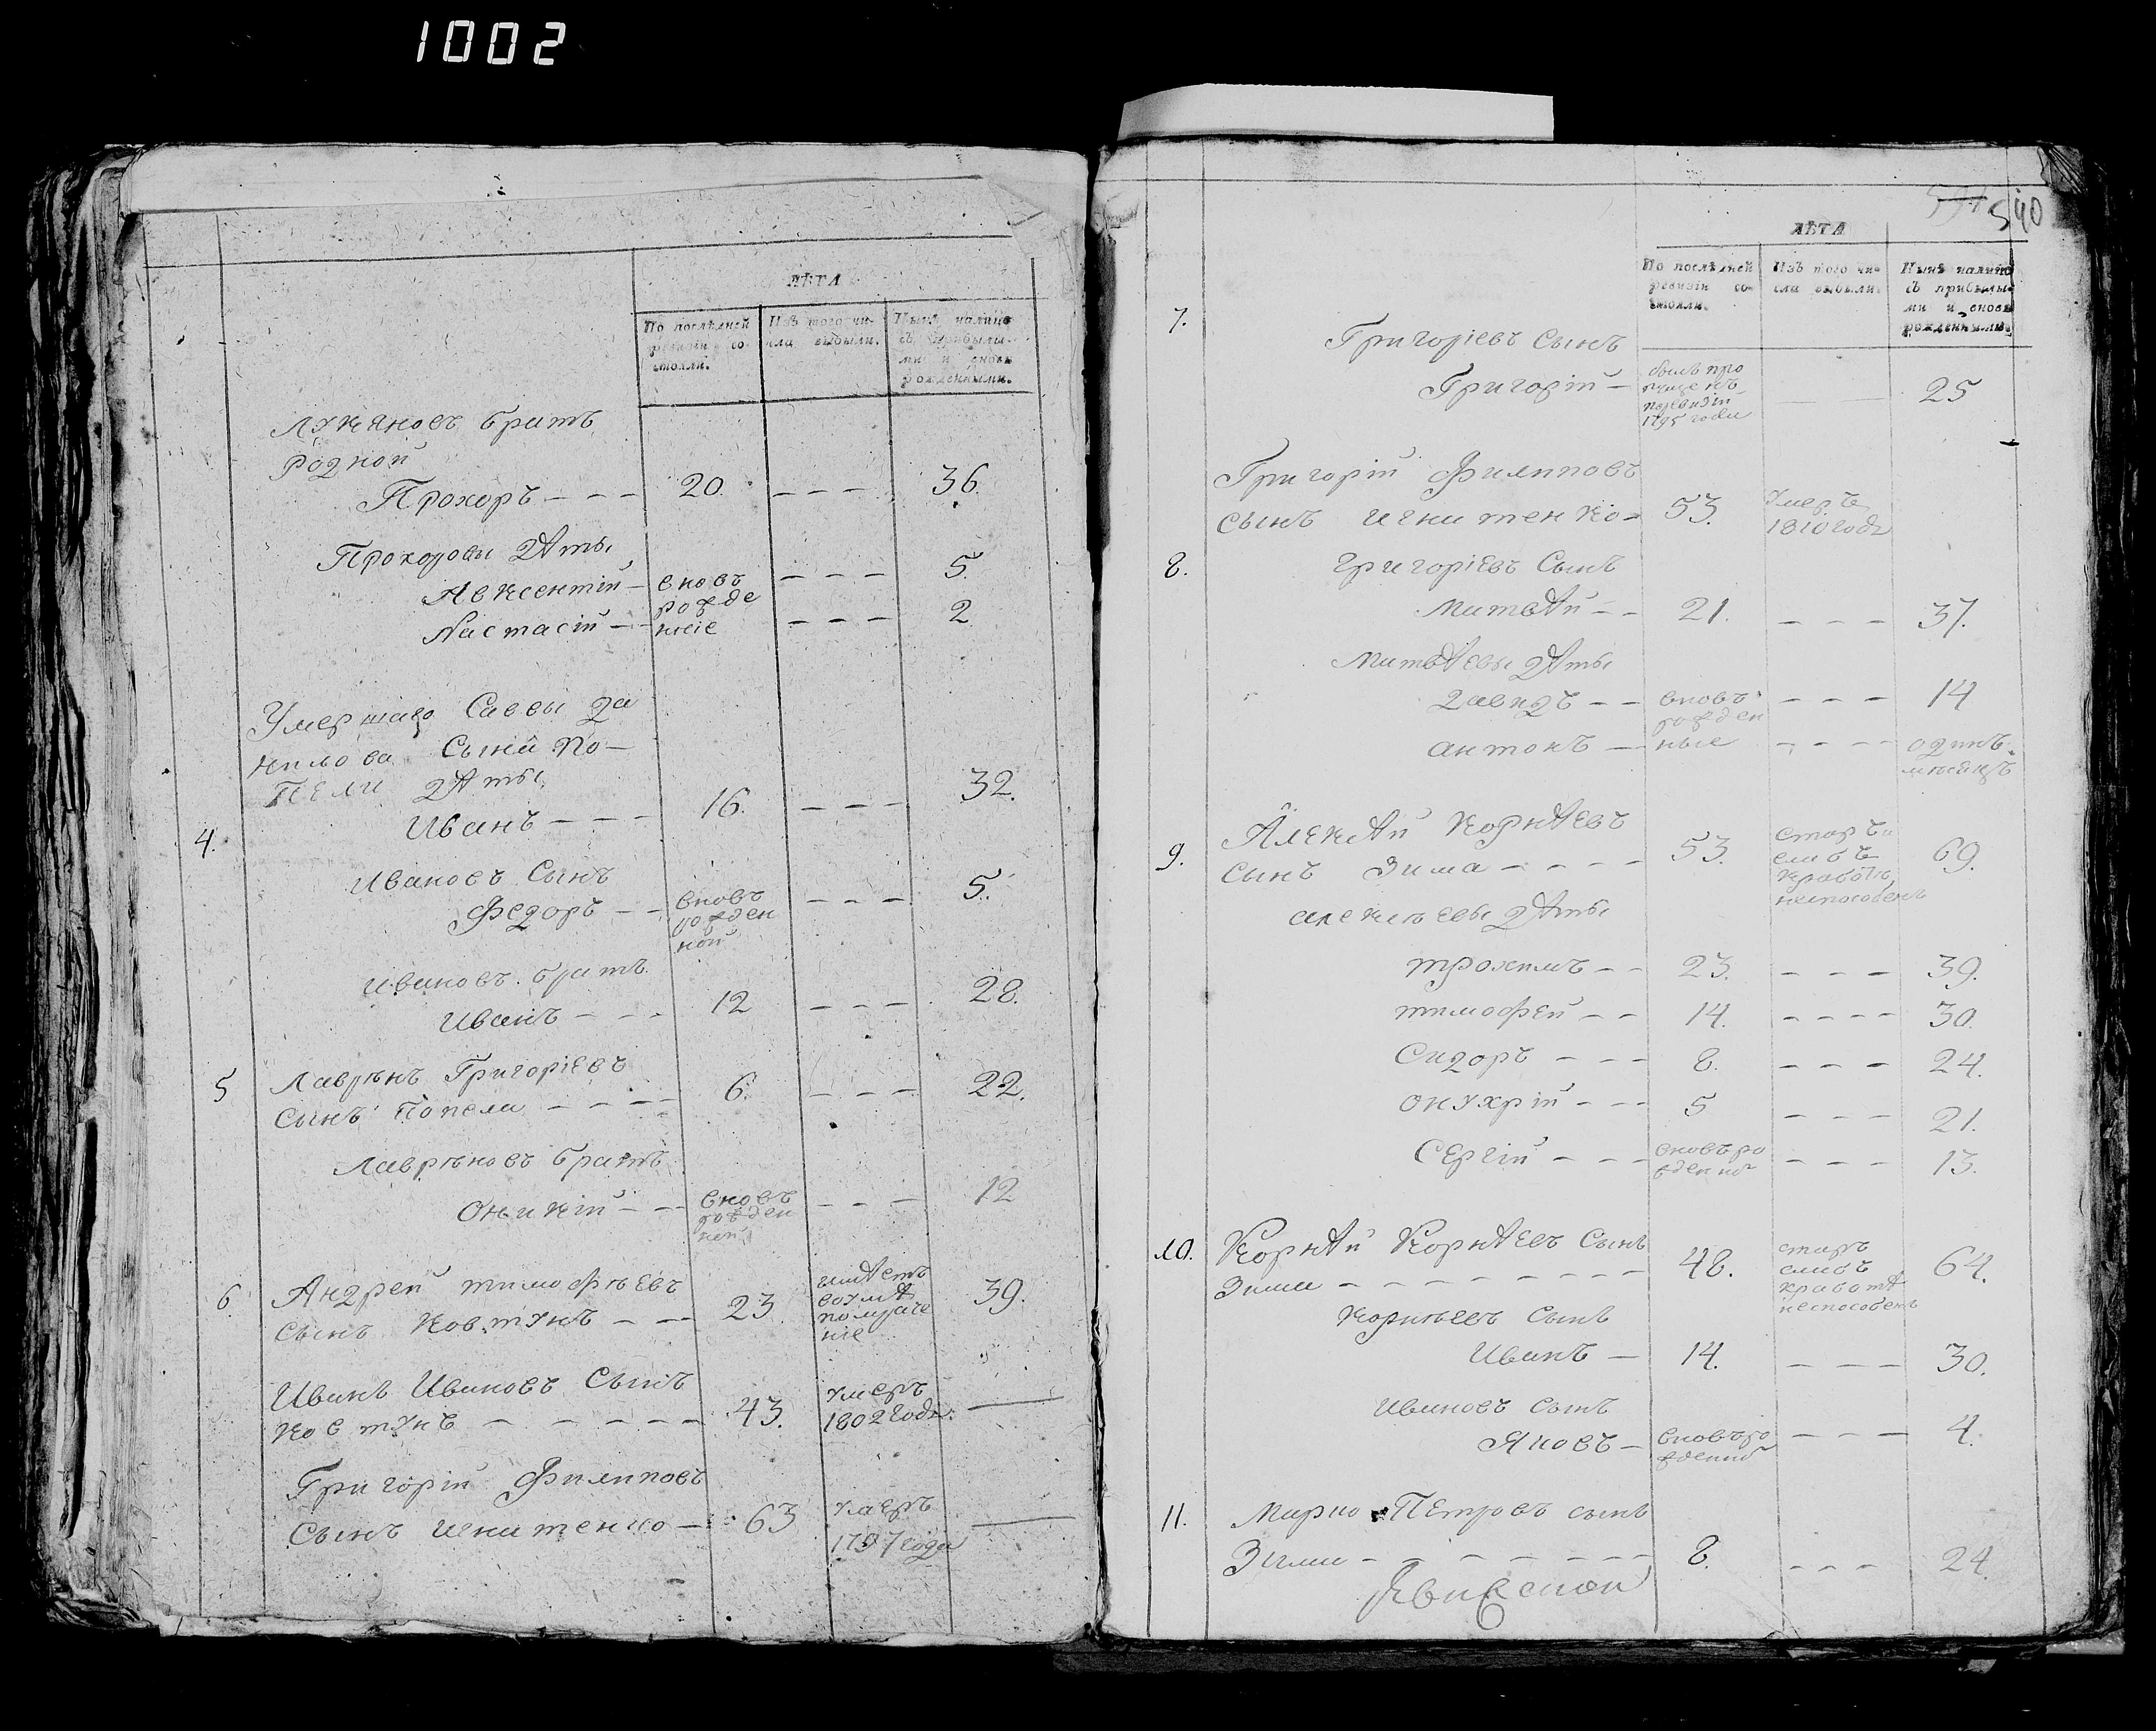 1002
ЛѢТА
По послѣдней ревизіи состояли.
Изъ того числа выбыли.
Нынѣ налицо съ прибылыми и вновь рожденными.
Лукяновъ братъ
Родной
Прохоръ — — — 20. — — — 36.
Прохоровы дѣты
Авксентій — вновъ — — — 5.
рожде
Настасій — — ныіе — — — 2
Умершаго Саввы Да
нилова Сына По—
пели дѣты
4. Иванъ — — — 16. — — — 32.
Ивановъ Сынъ
Федоръ — — вновъ — — — 5.
рожден
ной
Ивановъ братъ
Иванъ — — — 12 — — — 28.
5 Лаврѣнъ Григоріевъ
Сынъ Попела — — — — 6. — — — 22.
Лаврѣновъ братъ
Оникій — — вновъ — — — 12
рожден
ной
6 Андрей тимофѣевъ
Сынъ Ковтунъ — — 23 имѣетъ
вумѣ
помраче
ніе 39.
Иванъ Ивановъ Сынъ
Ковтунъ — — — — — — 43. умеръ
1802 года. ——
Григорій Филиповъ
Сынъ игнитенко — 63 умеръ
1797 года ——
540
ЛѢТА
По послѣдней ревизіи состояли.
Изъ того числа выбыли.
Нынѣ налицо съ прибылыми и вновь рожденными.
7. Григоріевъ Сынъ
Григорій — былъ про
пущенъ
поревизіи
1795 года — — 25
Григорій Филиповъ
сынъ игнитенко — 53. Умеръ
1810 года
8. григоріевъ Сынъ
Матвѣй — — 21. — — — 37.
Матвѣевы дѣты
Давидъ — — вновъ — — — 14
рожден
антонъ — ные — — — — одинъ
мѣсяцъ
9. Алексѣй Корнѣевъ
Сынъ Зима — — — — 53. старъ и
слабъ
кработѣ
неспособенъ 69.
алексѣевы дѣты
трохимъ — — 23. — — — 39.
тимофей — — 14. — — — — 30.
Сидоръ — — — 8. — — — 24.
онухрій — — — 5 — — — 21.
Сергій — — — вновъро
жденный — — — 13.
10. Корнѣй Корнѣевъ Сынъ
Зима — — — — — — — — 48. старъ
слабъ
кработѣ
неспособенъ 64.
Корнѣевъ Сынъ
Иванъ — 14. — — — 30.
Ивановъ Сынъ
Яковъ — вновъро
жденный — — — 4.
11. Марко Петровъ сынъ
Зима — — — — — — — 8. — — — 24.